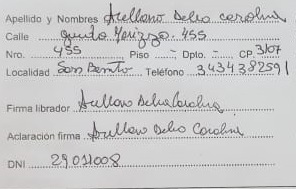 Apellido y Nombres Arellano Delia Carolina
Calle 455
Nro. 455 Piso - Dpto. - CP. 3107
Localidad San Benito Teléfono 3434382591
Firma librador Arellano Delia Carolina
Aclaración firma Arellano Delia Carolina
DNI 29011008